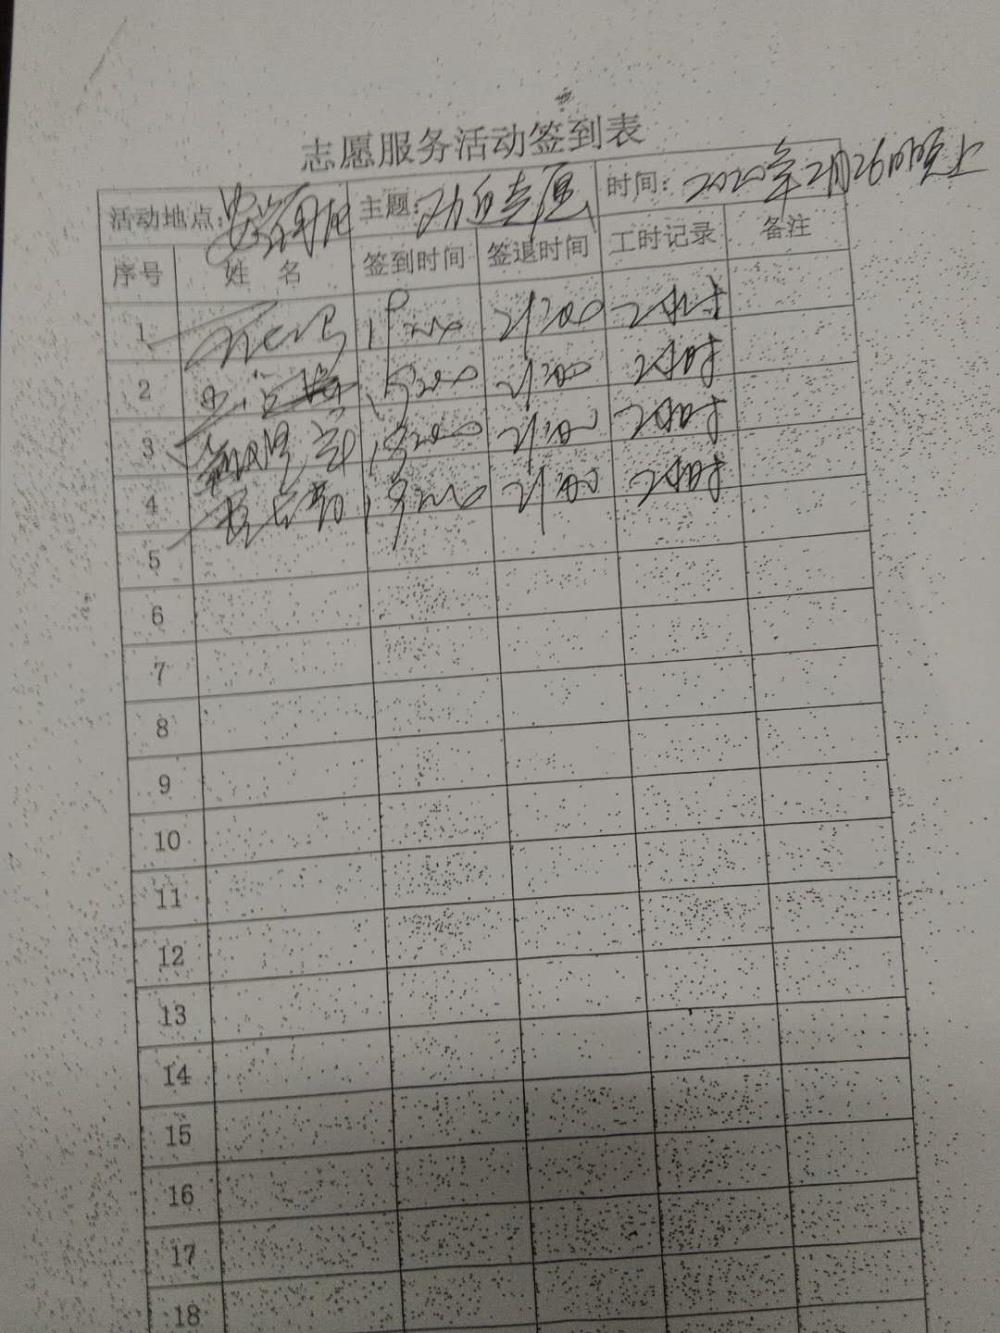 志愿服务活动签到表
活动地点: 主题: 志愿 时间: 2020年2月26日晚上
序号 姓 名 签到时间 签退时间 工时记录 备注
1 21:00 2小时
2 19:00 21:00 2小时
3 19:00 21:00 2小时
4 19:00 21:00 2小时
5
6
7
8
9
10
11
12
13
14
15
16
17
18